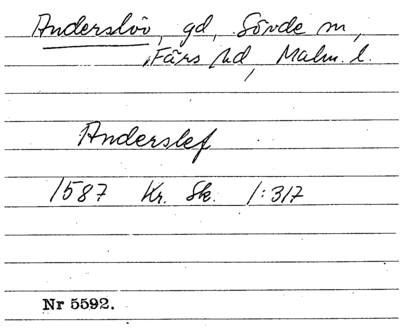 Anderslöv, gd, Sövde sn,
Färs hd, Malm. l.
Anderslef
1587 Kr. Sk. 1:317
Nr 5592.